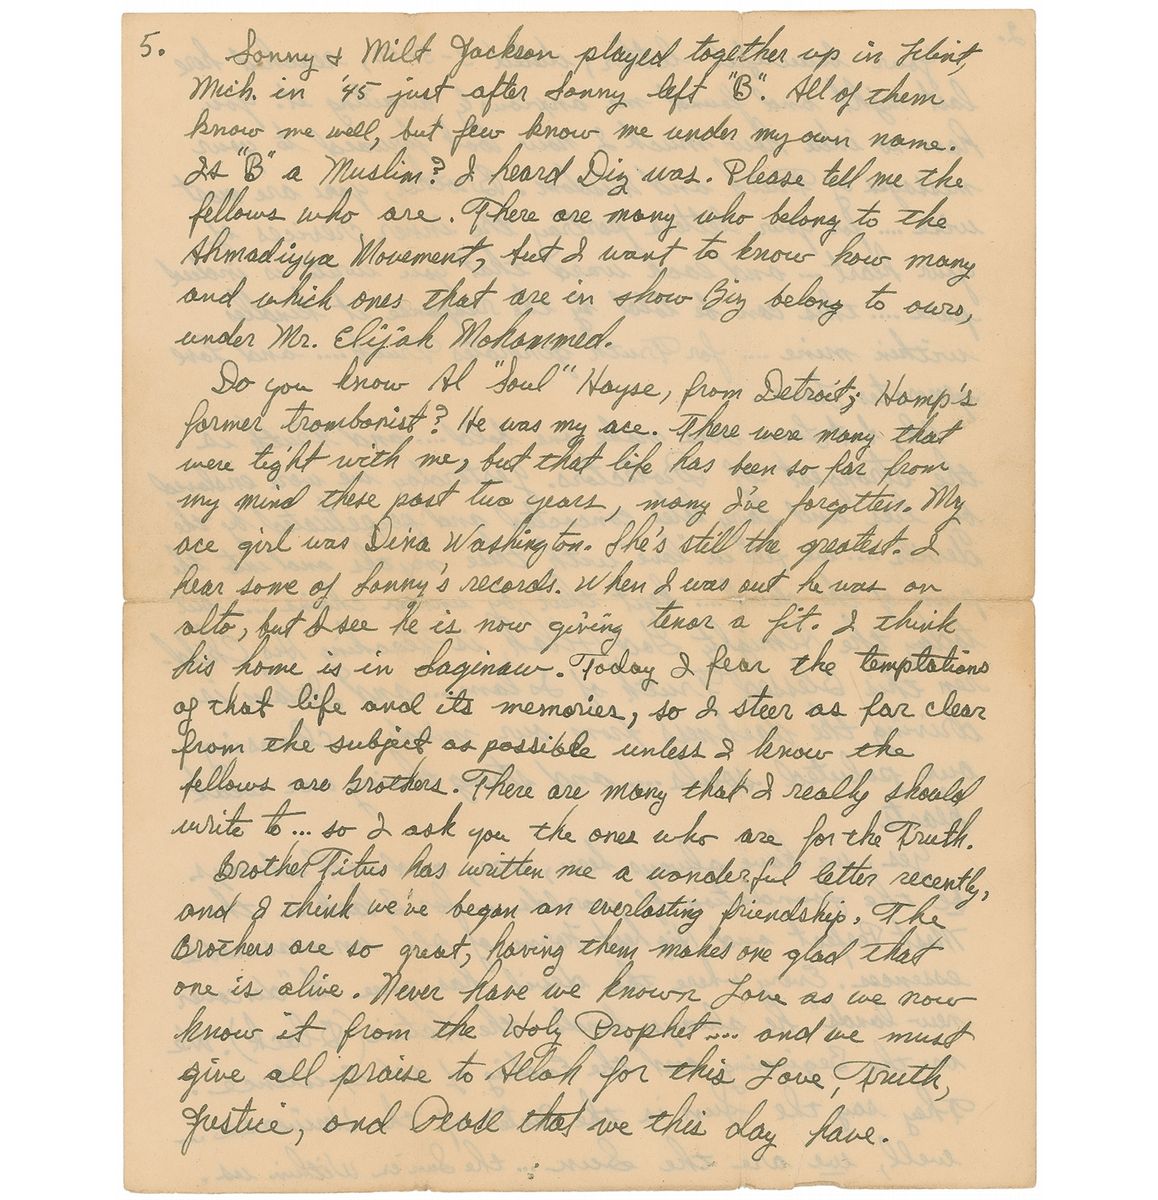 5. Sonny & Milt Jackson played together up in Flint,
Mich. in '45 just after Sonny left "B". All of them
know me well, but few know me under my own name.
Is "B" a Muslim? I heard Diz was. Please tell me the
fellows who are. There are many who belong to the
Ahmadiyya Movement, but I want to know how many
and which ones that are in show Biz belong to ours,
under Mr. Elijah Mohammed.
Do you know Al "Soul" Hayse, from Detroit; Hamp's
former trombonist? He was my ace. There were many that
were tight with me, but that life has been so far from
my mind these past two years, many I've forgotten. My
ace girl was Dina Washington. She's still the greatest. I
hear some of Sonny's records. When I was out he was on
alto, but I see he is now giving tenor a fit. I think
his home is in Saginaw. Today I fear the temptations
of that life and its memories, so I steer as far clear
from the subject as possible unless I know the
fellows are Brothers. There are many that I really should
write to... so I ask you the ones who are for the Truth.
Brother Titus has written me a wonderful letter recently,
and I think we've began an everlasting friendship. The
Brothers are so great, having them makes one glad that
one is alive. Never have we known Love as we now
know it from the Holy Prophet.... and we must
give all praise to Allah for this Love, Truth,
Justice, and Pease that we this day have.